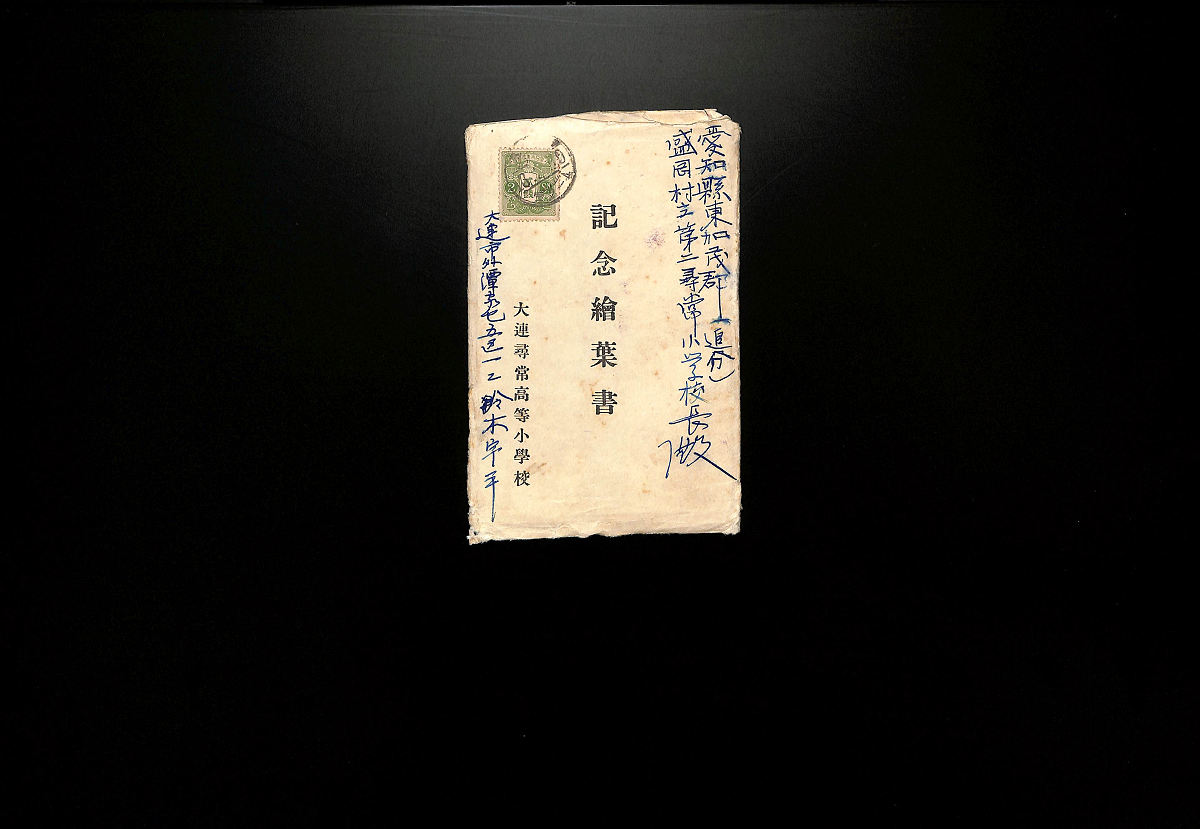 愛知縣東加茂郡(追分)
盛岡村立第二尋常小学校長殿
記念繪葉書
大連尋常高等小學校
大連市外譚家屯五区一二 鈴木
2 2